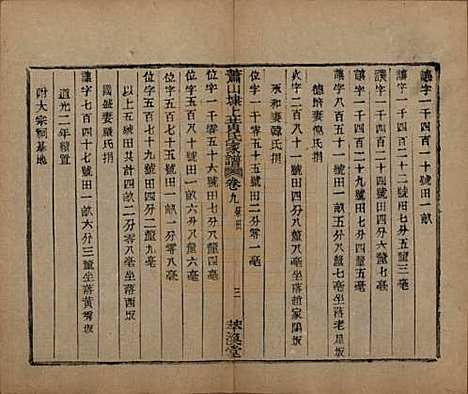 讓字一千四百二十號田一畝
讓字一千四百二十一號田七分五釐三毫
讓字一千四百二十九號田四分七釐九毫
讓字八百五十一號田四分八釐七毫坐落老星坂
德勝妻倪氏捐
火字二百八十一號田四分八釐坐落趙家隝坂
永和妻韓氏捐
位字一千零五十五號田零一毫
蕭山塘上黃氏家譜 卷九 祭田 三 萃渙堂
位字一千零五十四號田七分八釐八毫
位字五百八十四號田六分八釐六毫
位字五百七十五號田一分零八毫
位字五百七十九號田四分二釐九毫
以上五號田共計四畝二分零八毫坐落西坂
國盛妻嚴氏捐
道光二年續置
讓字七百四十七號田一畝六分三釐坐落黃灣坂
附大宗祠基地